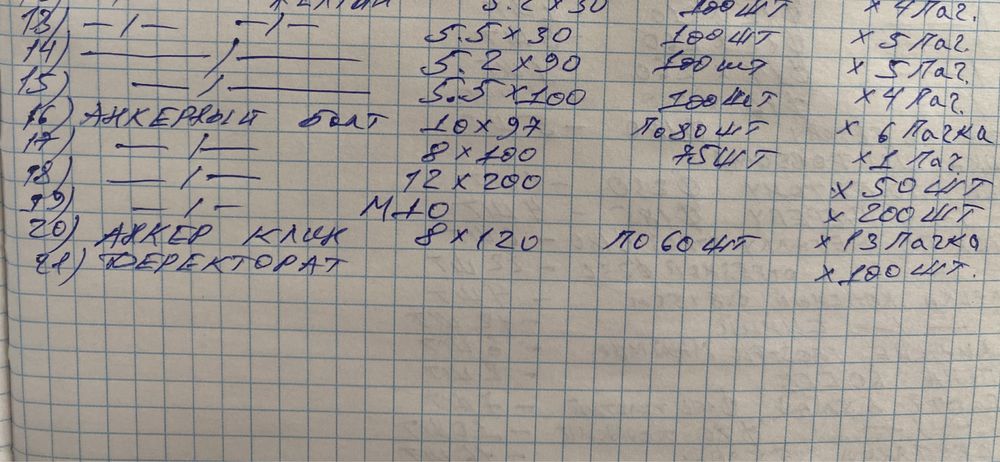 5.2 x 30 100 шт x 4 Пач.
13) — / — — / — 5.5 x 30 100 шт x 5 Пач.
14) — / — 5.2 x 90 100 шт x 5 Пач.
15) — / — 5.5 x 100 100 шт x 4 Пач.
16) АНКЕРНЫЙ болт 10 x 97 По 80 шт x 6 Пачка
17) — / — 8 x 100 75 шт x 1 Пач.
18) — / — 12 x 200 x 50 шт
19) — / — М10 x 200 шт
20) АНКЕР КЛИН 8 x 120 ПО 60 шт x 13 Пачка
21) ФЕРЕКТОРАТ x 100 шт.